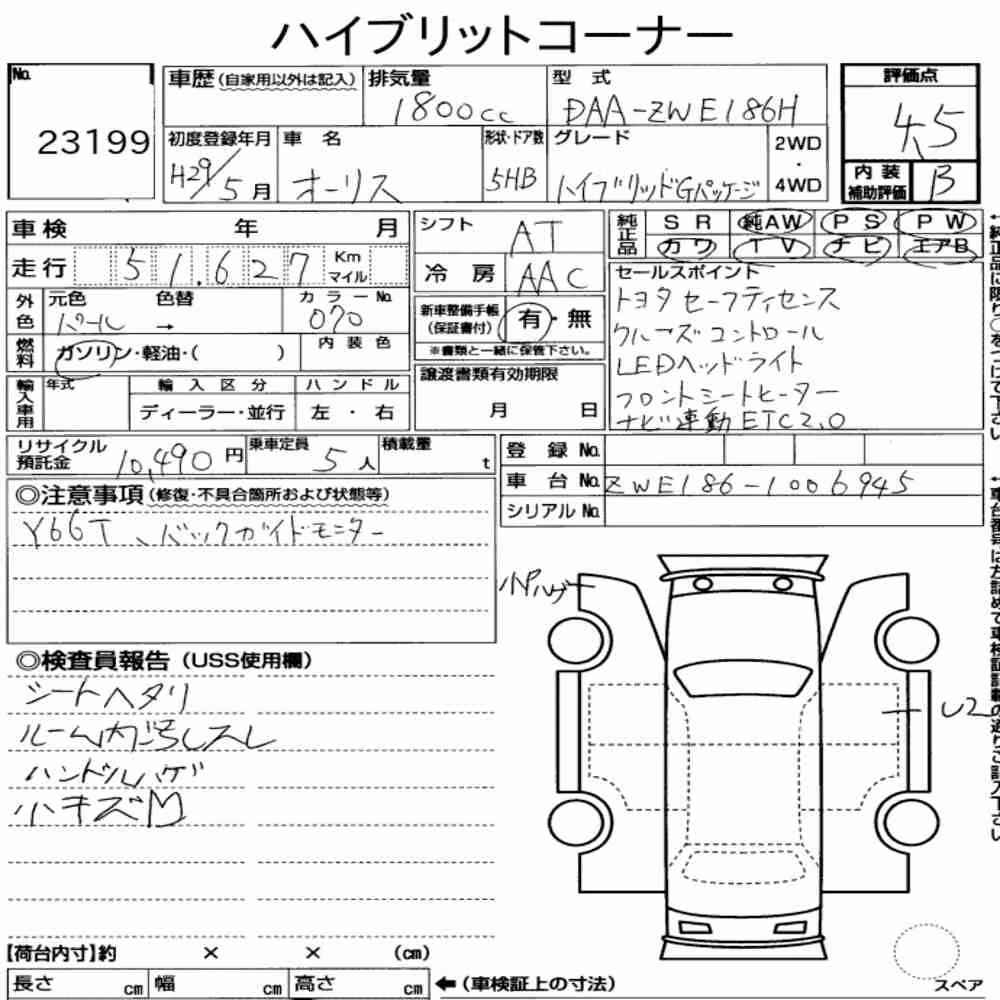 ハイブリットコーナー
No.
23199
車歴(自家用以外は記入)
排気量
1800cc
型 式
DAA-ZWE186H
評価点
4.5
初度登録年月
H29/5月
車 名
オーリス
形状・ドア数
5HB
グレード
ハイブリッドGパッケージ
2WD
・
4WD
内 装
補助評価
B
車検 年 月
走行
51,627
Km
マイル
シフト
AT
冷 房
AAC
純正品
SR 純AW PS PW
カワ TV ナビ エアB
セールスポイント
トヨタセーフティセンス
クルーズコントロール
LEDヘッドライト
フロントシートヒーター
ナビ連動ETC2.0
外色
元色 色替
パール →
カラーNo.
070
新車整備手帳
(保証書付)
有・無
※書類と一緒に保管下さい。
燃料
ガソリン・軽油・( )
内 装 色
輸入車用
年式
輸 入 区 分
ディーラー・並行
ハ ン ド ル
左 ・ 右
譲渡書類有効期限
月 日
リサイクル
預託金
10,490円
乗車定員
5人
積載量
t
登 録 No.
車 台 No. ZWE186-1006945
シリアル No.
◎注意事項(修復・不具合箇所および状態等)
Y66T、バックガイドモニター
◎検査員報告(USS使用欄)
シートヘタリ
ルーム内汚レスレ
ハンドルハゲ
小キズM
U2
【荷台内寸】約 × × (cm)
長さ cm 幅 cm 高さ cm
←(車検証上の寸法)
スペア
←純正品に限り○をつけて下さい
←車台番号は左詰めで車検証記載の通りご記入下さい